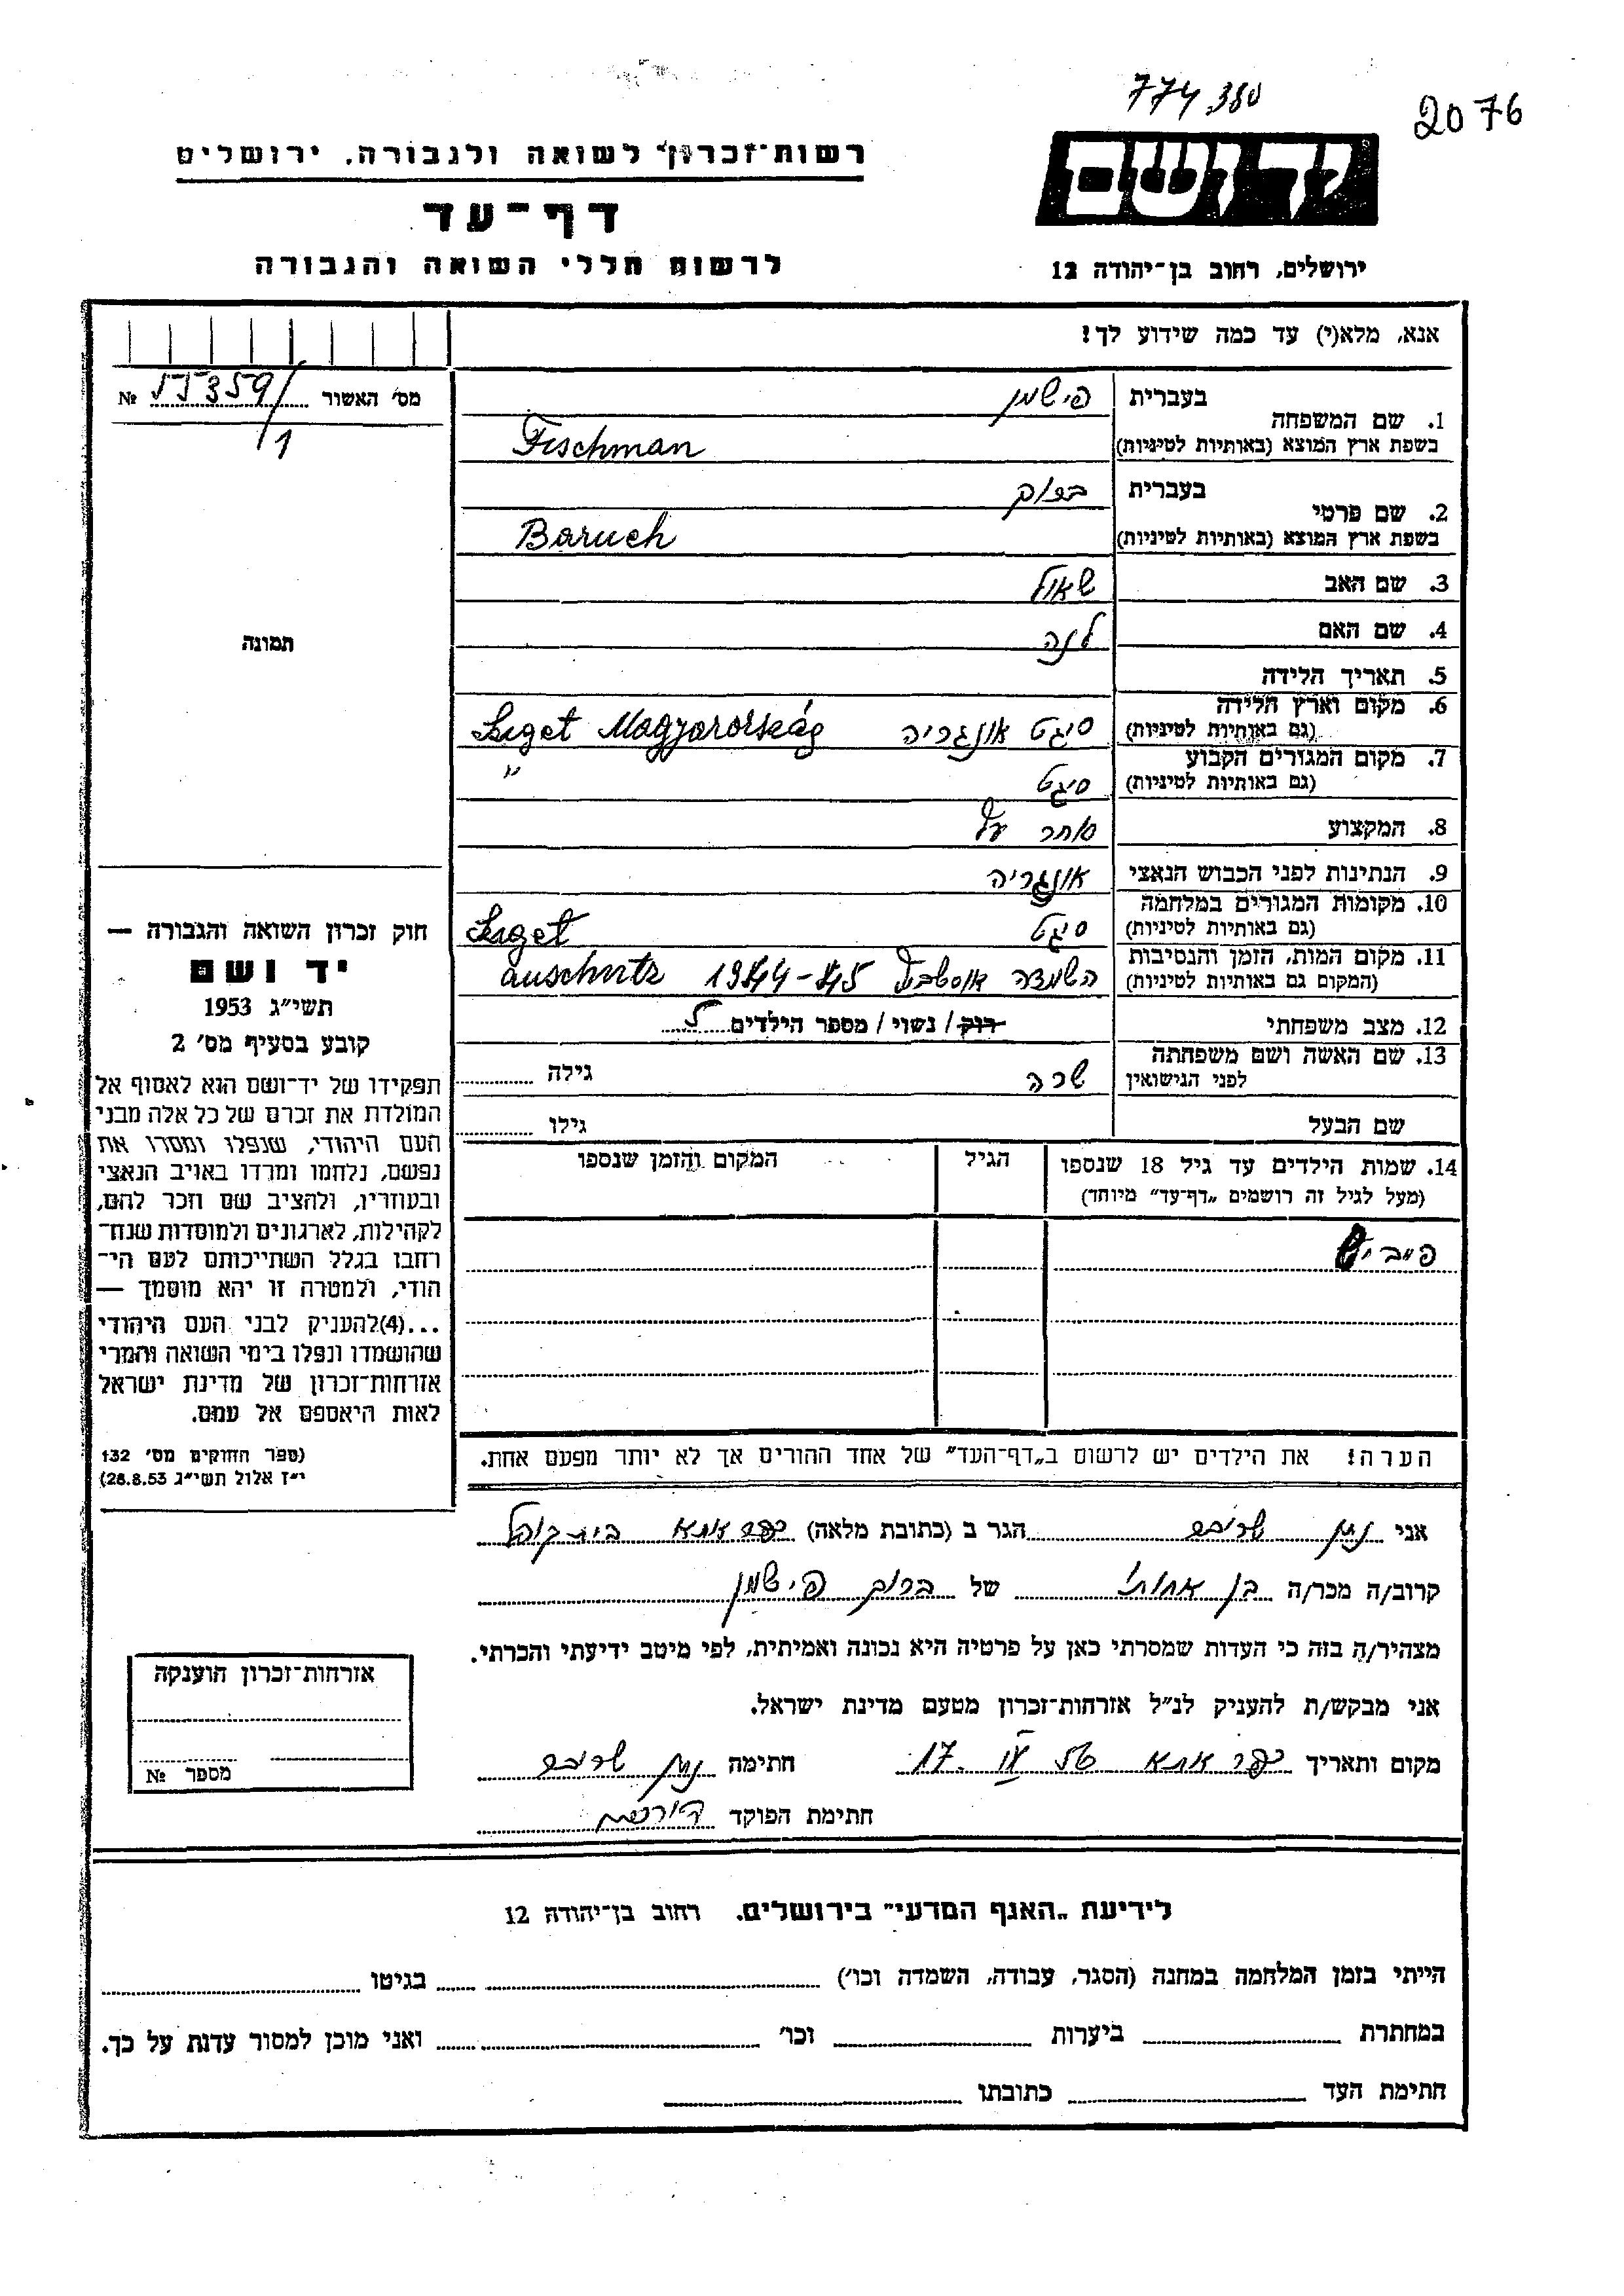 774380
2076
יד ושם
ירושלים, רחוב בן־יהודה 12
רשות־זכרון לשואה ולגבורה, ירושלים
דף־עד
לרשום חללי השואה והגבורה
אנא, מלא(י) עד כמה שידוע לך!
מס׳ האשור № 55359/1
תמונה
1. שם המשפחה
בעברית פישמן
בשפת ארץ המוצא (באותיות לטיניות) Fischman
2. שם פרטי
בעברית ברוך
בשפת ארץ המוצא (באותיות לטיניות) Baruch
3. שם האב שאול
4. שם האם לנה
5. תאריך הלידה
6. מקום וארץ הלידה
(גם באותיות לטיניות) סיגט אונגריה Sziget Magyarország
7. מקום המגורים הקבוע
(גם באותיות לטיניות) סיגט "
8. המקצוע סוחר
9. הנתינות לפני הכבוש הנאצי אונגריה
10. מקומות המגורים במלחמה
(גם באותיות לטיניות) סיגט Sziget
11. מקום המות, הזמן והנסיבות
(המקום גם באותיות לטיניות) השמדה 1944-45 auschvitz
12. מצב משפחתי רוק / נשוי / מספר הילדים 5
13. שם האשה ושם משפחתה
לפני הנישואין שרה גילה
שם הבעל גילו
14. שמות הילדים עד גיל 18 שנספו
(מעל לגיל זה רושמים „דף־עד" מיוחד)
הגיל
המקום והזמן שנספו
פייביש
הערה! את הילדים יש לרשום ב„דף־העד" של אחד ההורים אך לא יותר מפעם אחת.
חוק זכרון השואה והגבורה —
יד ושם
תשי״ג 1953
קובע בסעיף מס׳ 2
תפקידו של יד־ושם הוא לאסוף אל
המולדת את זכרם של כל אלה מבני
העם היהודי, שנפלו ומסרו את
נפשם, נלחמו ומרדו באויב הנאצי
ובעוזריו, ולהציב שם וזכר להם,
לקהילות, לארגונים ולמוסדות שנח־
רחבו בגלל השתייכותם לעם הי־
הודי, ולמטרה זו יהא מוסמך —
...(4)להעניק לבני העם היהודי
שהושמדו ונפלו בימי השואה והמרי
אזרחות־זכרון של מדינת ישראל
לאות היאספם אל עמם.
(ספר החוקים מס׳ 132
י״ז אלול תשי״ג 28.8.53)
אני נתן הגר ב (כתובת מלאה) כפר אתא
קרוב/ה מכר/ה בן אחותי של ברוך פישמן
מצהיר/ה בזה כי העדות שמסרתי כאן על פרטיה היא נכונה ואמיתית, לפי מיטב ידיעתי והכרתי.
אני מבקש/ת להעניק לנ״ל אזרחות־זכרון מטעם מדינת ישראל.
מקום ותאריך כפר אתא 17. IV 56 חתימה נתן
חתימת הפוקד
אזרחות־זכרון הוענקה
מספר №
לידיעת „האגף המדעי" בירושלים. רחוב בן־יהודה 12
הייתי בזמן המלחמה במחנה (הסגר, עבודה, השמדה וכו׳) בגיטו
במחתרת ביערות וכו׳ ואני מוכן למסור עדות על כך.
חתימת העד כתובתו